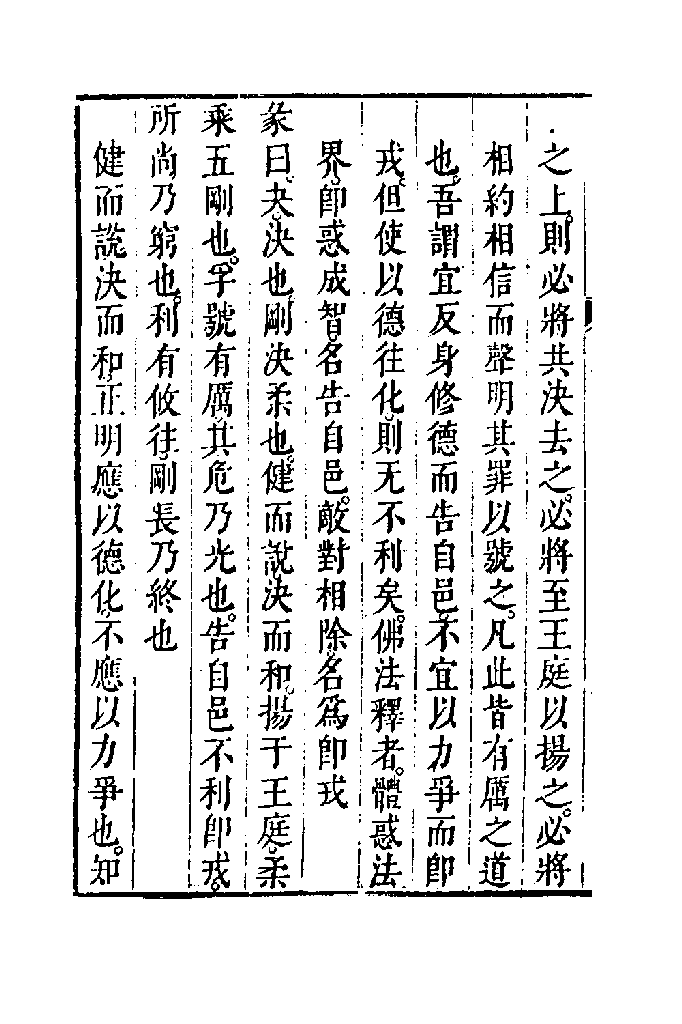 之上。則必將共決去之。必將至王庭以揚之。必將
相約相信而聲明其罪以號之。凡此皆有厲之道
也。吾謂宜反身修德而告自邑。不宜以力爭而即
戎。但使以德往化。則无不利矣。佛法釋者。體惑法
界。即惑成智。名告自邑。敵對相除。名爲即戎
彖曰。夬。決也。剛決柔也。健而說。決而和。揚于王庭。柔
乘五剛也。孚號有厲。其危乃光也。告自邑不利即戎。
所尚乃窮也。利有攸往。剛長乃終也
健而說決而和。正明應以德化。不應以力爭也。知